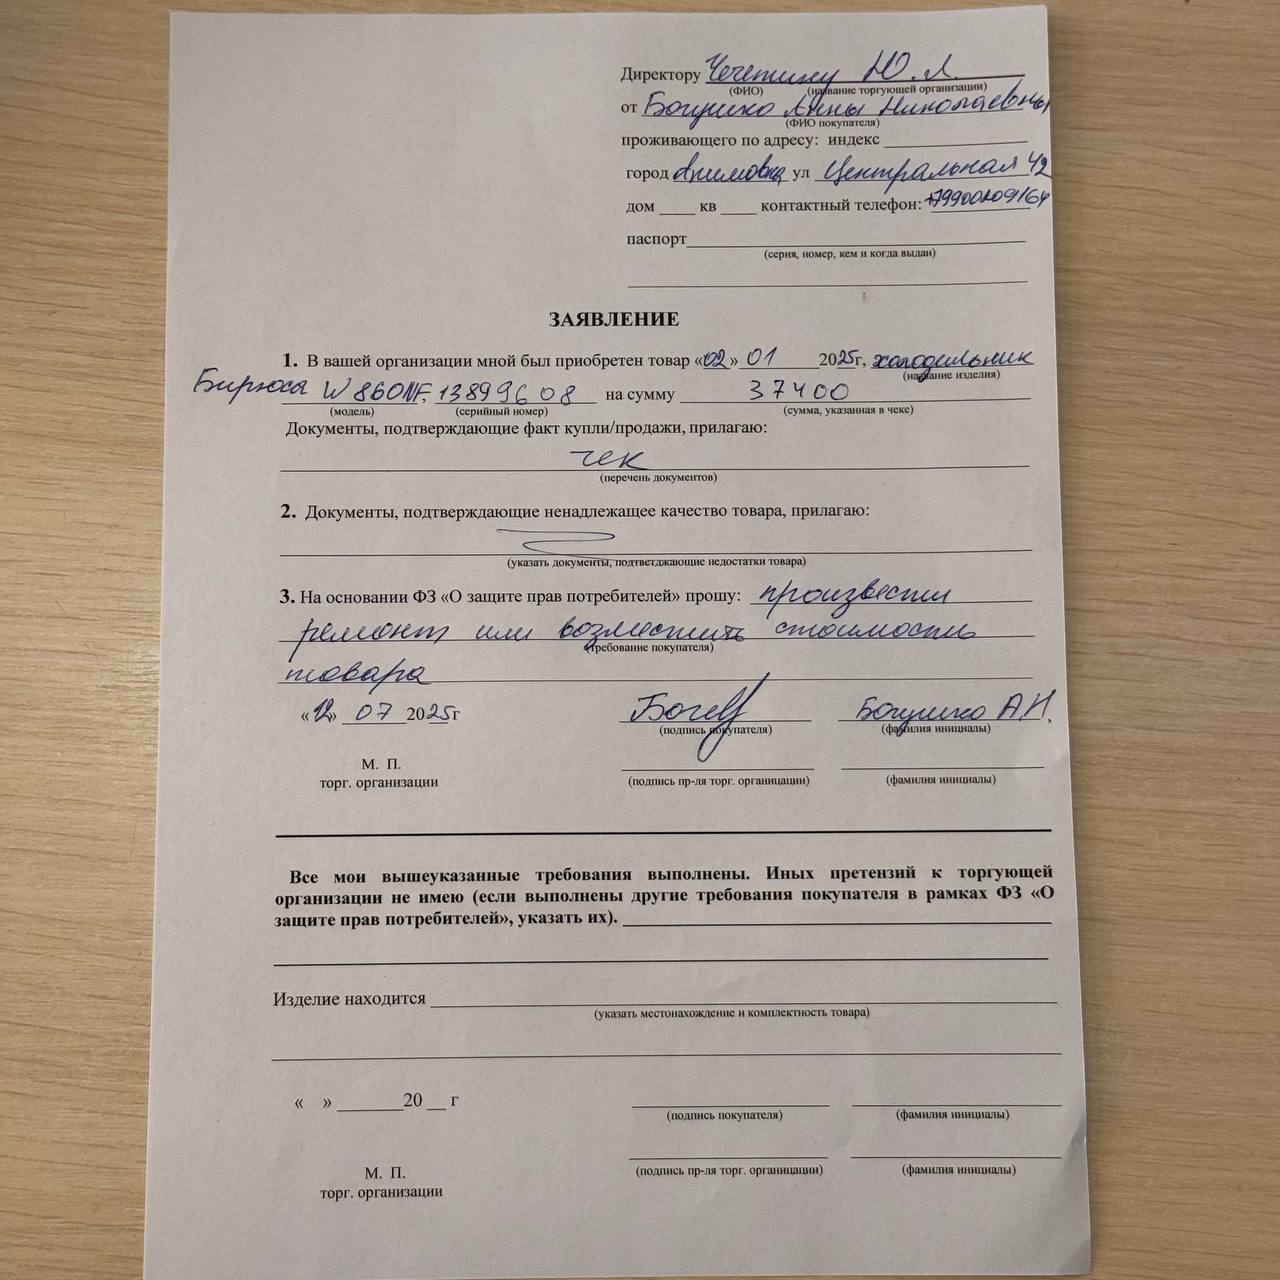 Директору Чечетину Ю. Л.
(ФИО) (название торгующей организации)
от Богушко Анны Николаевны
(ФИО покупателя)
проживающего по адресу: индекс
город Акимовка ул Центральная 42
дом ____ кв ____ контактный телефон: +79900209164
паспорт
(серия, номер, кем и когда выдан)
ЗАЯВЛЕНИЕ
1. В вашей организации мной был приобретен товар «02» 01 2025г, холодильник
(название изделия)
Бирюса W860NF, 13899608 на сумму 37400
(модель) (серийный номер) (сумма, указанная в чеке)
Документы, подтверждающие факт купли/продажи, прилагаю:
чек
(перечень документов)
2. Документы, подтверждающие ненадлежащее качество товара, прилагаю:
(указать документы, подтветджающие недостатки товара)
3. На основании ФЗ «О защите прав потребителей» прошу: произвести
ремонт или возместить стоимость
(требование покупателя)
товара
«12» 07 2025г Богушко А.Н.
(подпись покупателя) (фамилия инициалы)
М. П.
торг. организации (подпись пр-ля торг. органицации) (фамилия инициалы)
Все мои вышеуказанные требования выполнены. Иных претензий к торгующей
организации не имею (если выполнены другие требования покупателя в рамках ФЗ «О
защите прав потребителей», указать их).
Изделие находится
(указать местонахождение и комплектность товара)
« » _______20 __ г
(подпись покупателя) (фамилия инициалы)
М. П. (подпись пр-ля торг. органицации) (фамилия инициалы)
торг. организации